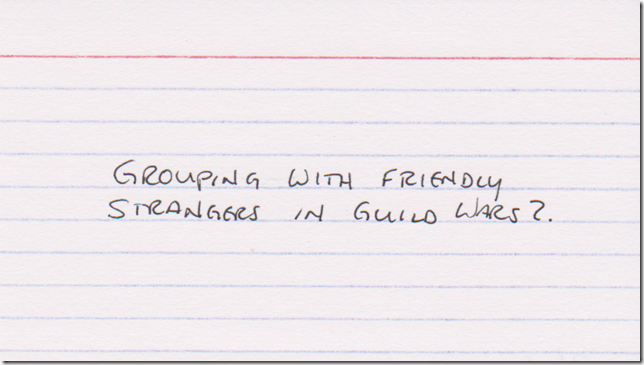 GROUPING WITH FRIENDLY
STRANGERS IN GUILD WARS 2.